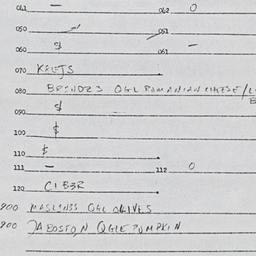 041 — 042 0
050 051
060 $ 061 —
070 KREJS
080 BRENDZS OGL ROMANIAN CHEESE/L
090 $
100 $
110 $
111 — 112 0
120 CIBER
900 MASLINSS OGL OLIVES
900 DABOSTON OGLE PUMPKIN